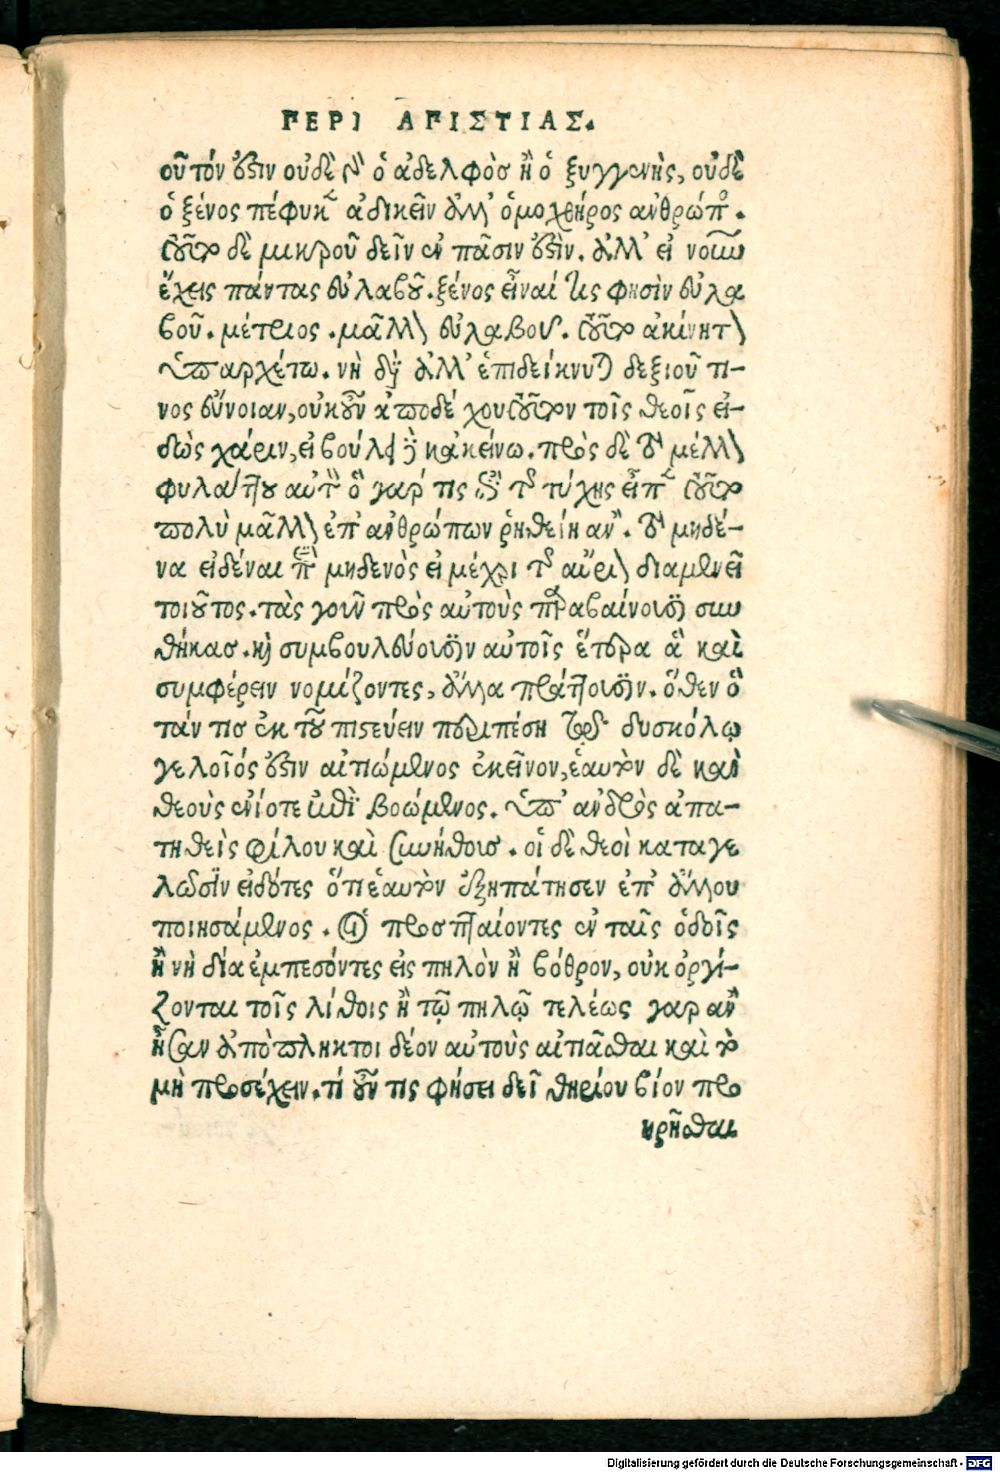 ΠΕΡΙ ΑΠΙΣΤΙΑΣ.
οῦτόν ἐστιν οὐδὲ γὰρ ὁ ἀδελφὸσ ἢ ὁ ξυγγενὴς, οὐδὲ
ὁ ξένος πέφυκεν ἀδικεῖν ἀλλ' ὁ μοχθηρος ἀνθρώπος.
τοῦτο δὲ μικροῦ δεῖν ἐν πᾶσιν ἐστὶν. ἀλλ' εἰ νοῦν
ἔχεις πάντας εὐλαβοῦ. ξένος εἶναί τις φησὶν εὐλα
βοῦ. μέτριος. μᾶλλον εὐλαβου. τοῦτο ἀκίνητον
ὑπαρχέτω. νὴ δί' ἀλλ' ἐπιδείκνυται δεξιοῦ τι-
νος εὔνοιαν, οὐκοῦν ἀποδέχου τοῦτον τοῖς θεοῖς εἰ-
δὼς χάριν, εἰ βούλει κἀκείνω. πρὸς δὲ τὸ μέλλον
φυλάττου αὐτὸν ὃ γάρ τις ἐπὶ τῆς τύχης εἶπεν τοῦτο
πολὺ μᾶλλον ἐπ' ἀνθρώπων ῥηθείη ἂν. τὸ μηδέ-
να εἰδέναι περὶ μηδενὸς εἰ μέχρι τῆς αὔριον διαμενεῖ
τοιοῦτος. τὰς γοῦν πρὸς αὐτοὺς παραβαίνουσι συν
θήκασ. καὶ συμβουλεύουσιν αὐτοῖς ἕτερα ἃ καὶ
συμφέρειν νομίζοντες, ἄλλα πράττουσιν. ὅθεν ὅ
τάν τισ ἐκ τοῦ πιστεύειν περιπέση τῳ δυσκόλῳ
γελοῖός ἐστιν αἰτιώμενος ἐκεῖνον, ἑαυτὸν δὲ καὶ
θεοὺς ἐνίοτε βοώμενος. ὑπ' ἀνδρὸς ἀπα-
τηθεὶς φίλου καὶ συνήθουσ. οἱ δὲ θεοὶ καταγε
λῶσιν εἰδότες ὅτι ἑαυτὸν ἐξηπάτησεν ἐπ' ἄλλου
ποιησάμενος. οἱ προσπταίοντες ἐν ταῖς ὁδοῖς
ἢ νὴ δία ἐμπεσόντες εἰς πηλὸν ἢ βόθρον, οὐκ ὀργί-
ζονται τοῖς λίθοις ἢ τῷ πηλῷ τελέως γὰρ ἂν
ἦσαν ἀπὸπληκτοι δέον αὐτοὺς αἰτιᾶσθαι καὶ τὸ
μὴ προσέχειν. τί οὖν τις φήσει δεῖ θηρίου βίον προ
ῃρῆσθαι